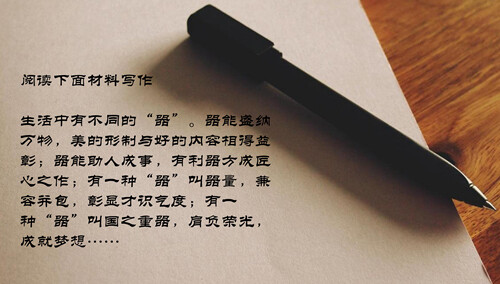 阅读下面材料写作
生活中有不同的“器”。器能盛纳
万物，美的形制与好的内容相得益
彰；器能助人成事，有利器方成匠
心之作；有一种“器”叫器量，兼
容并包，彰显才识气度；有一
种“器”叫国之重器，肩负荣光，
成就梦想……